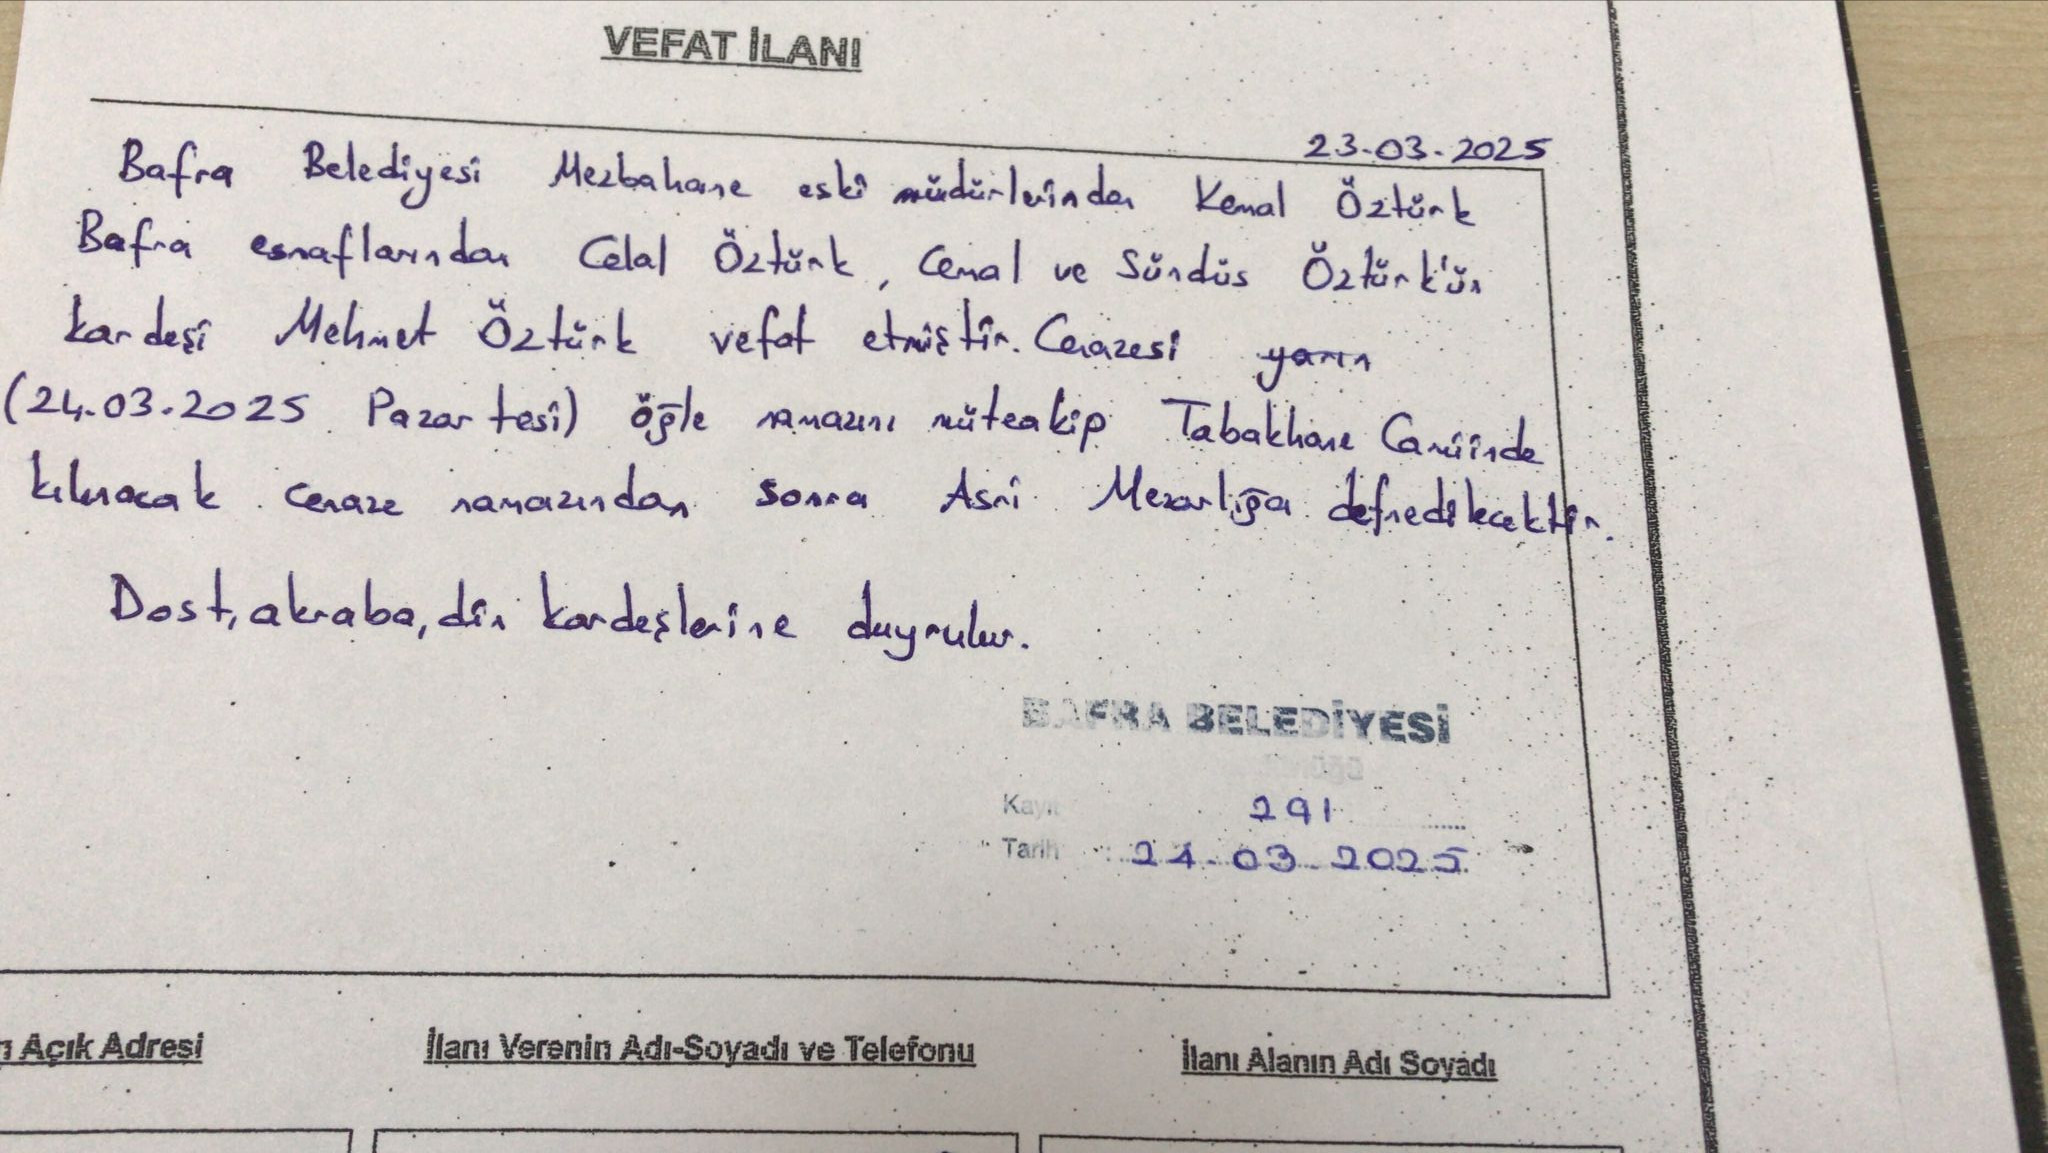 VEFAT İLANI
23.03.2025
Bafra Belediyesi Mezbahane eski müdürlerinden Kemal Öztürk
Bafra esnaflarından Celal Öztürk, Cemal ve Sündüs Öztürk'ün
kardeşi Mehmet Öztürk vefat etmiştir. Cenazesi yarın
(24.03.2025 Pazartesi) öğle namazını müteakip Tabakhane Camiinde
kılınacak cenaze namazından sonra Asri Mezarlığa defnedilecektir.
Dost, akraba, din kardeşlerine duyrulur.
BAFRA BELEDİYESİ
Kayıt 291
Tarih : 24.03.2025
Açık Adresi
İlanı Verenin Adı-Soyadı ve Telefonu
İlanı Alanın Adı Soyadı